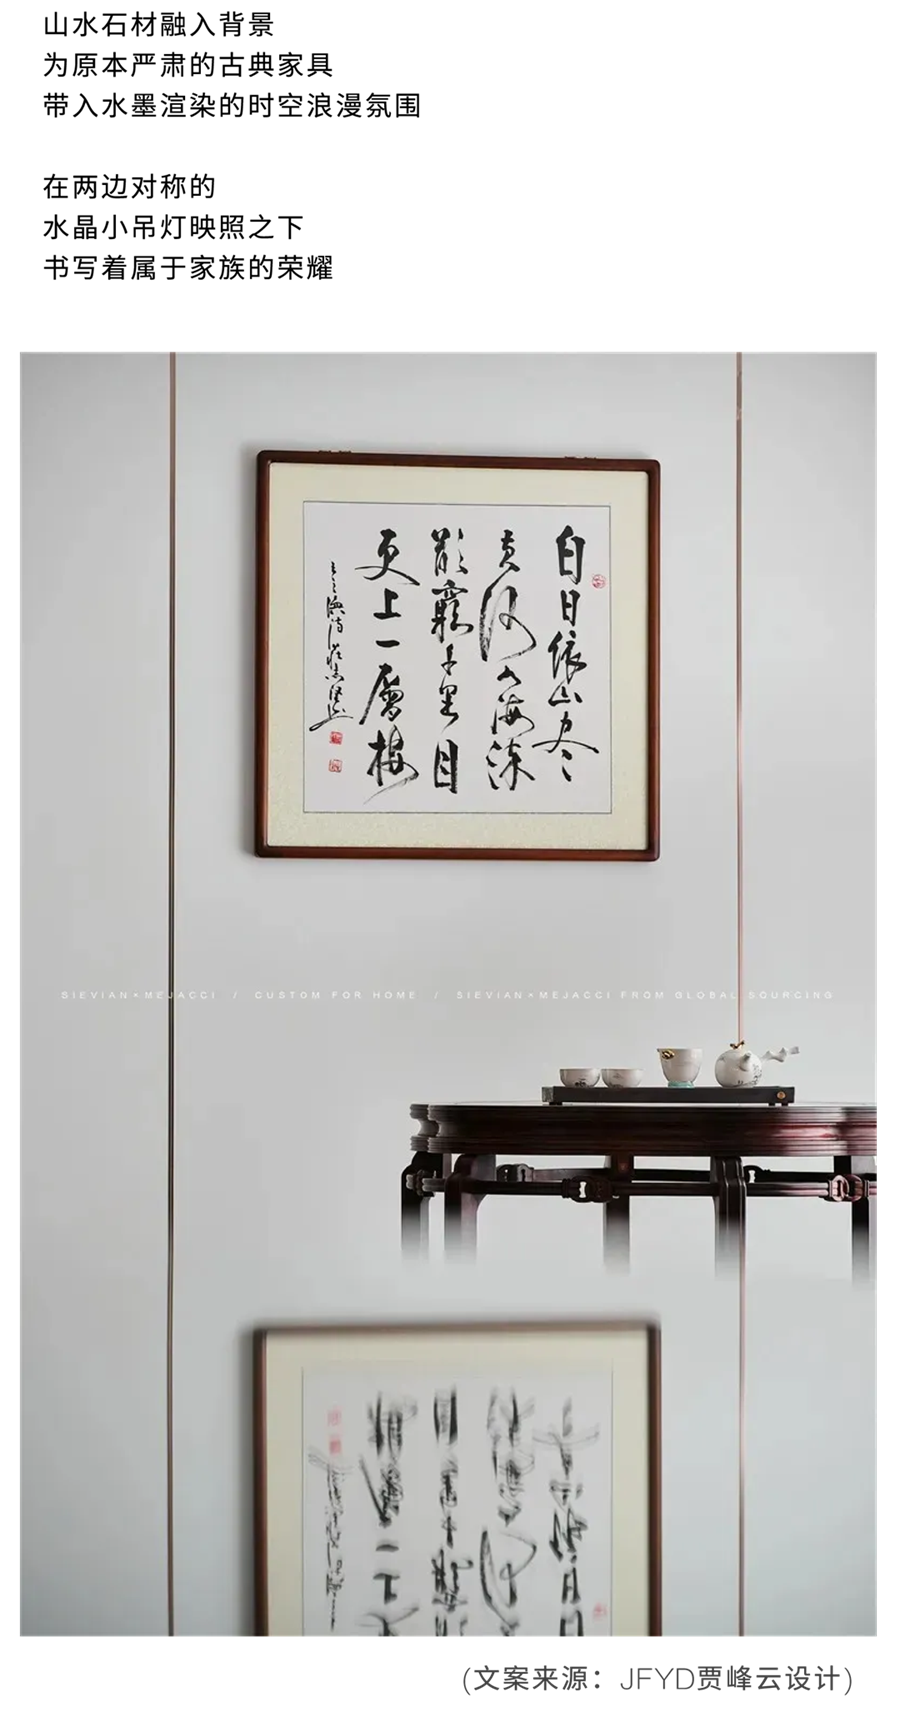 山水石材融入背景
为原本严肃的古典家具
带入水墨渲染的时空浪漫氛围
在两边对称的
水晶小吊灯映照之下
书写着属于家族的荣耀
白日依山尽
黄河入海流
欲穷千里目
更上一层楼
SIEVIAN×MEJACCI / CUSTOM FOR HOME / SIEVIAN×MEJACCI FROM GLOBAL SOURCING
(文案来源：JFYD贾峰云设计)